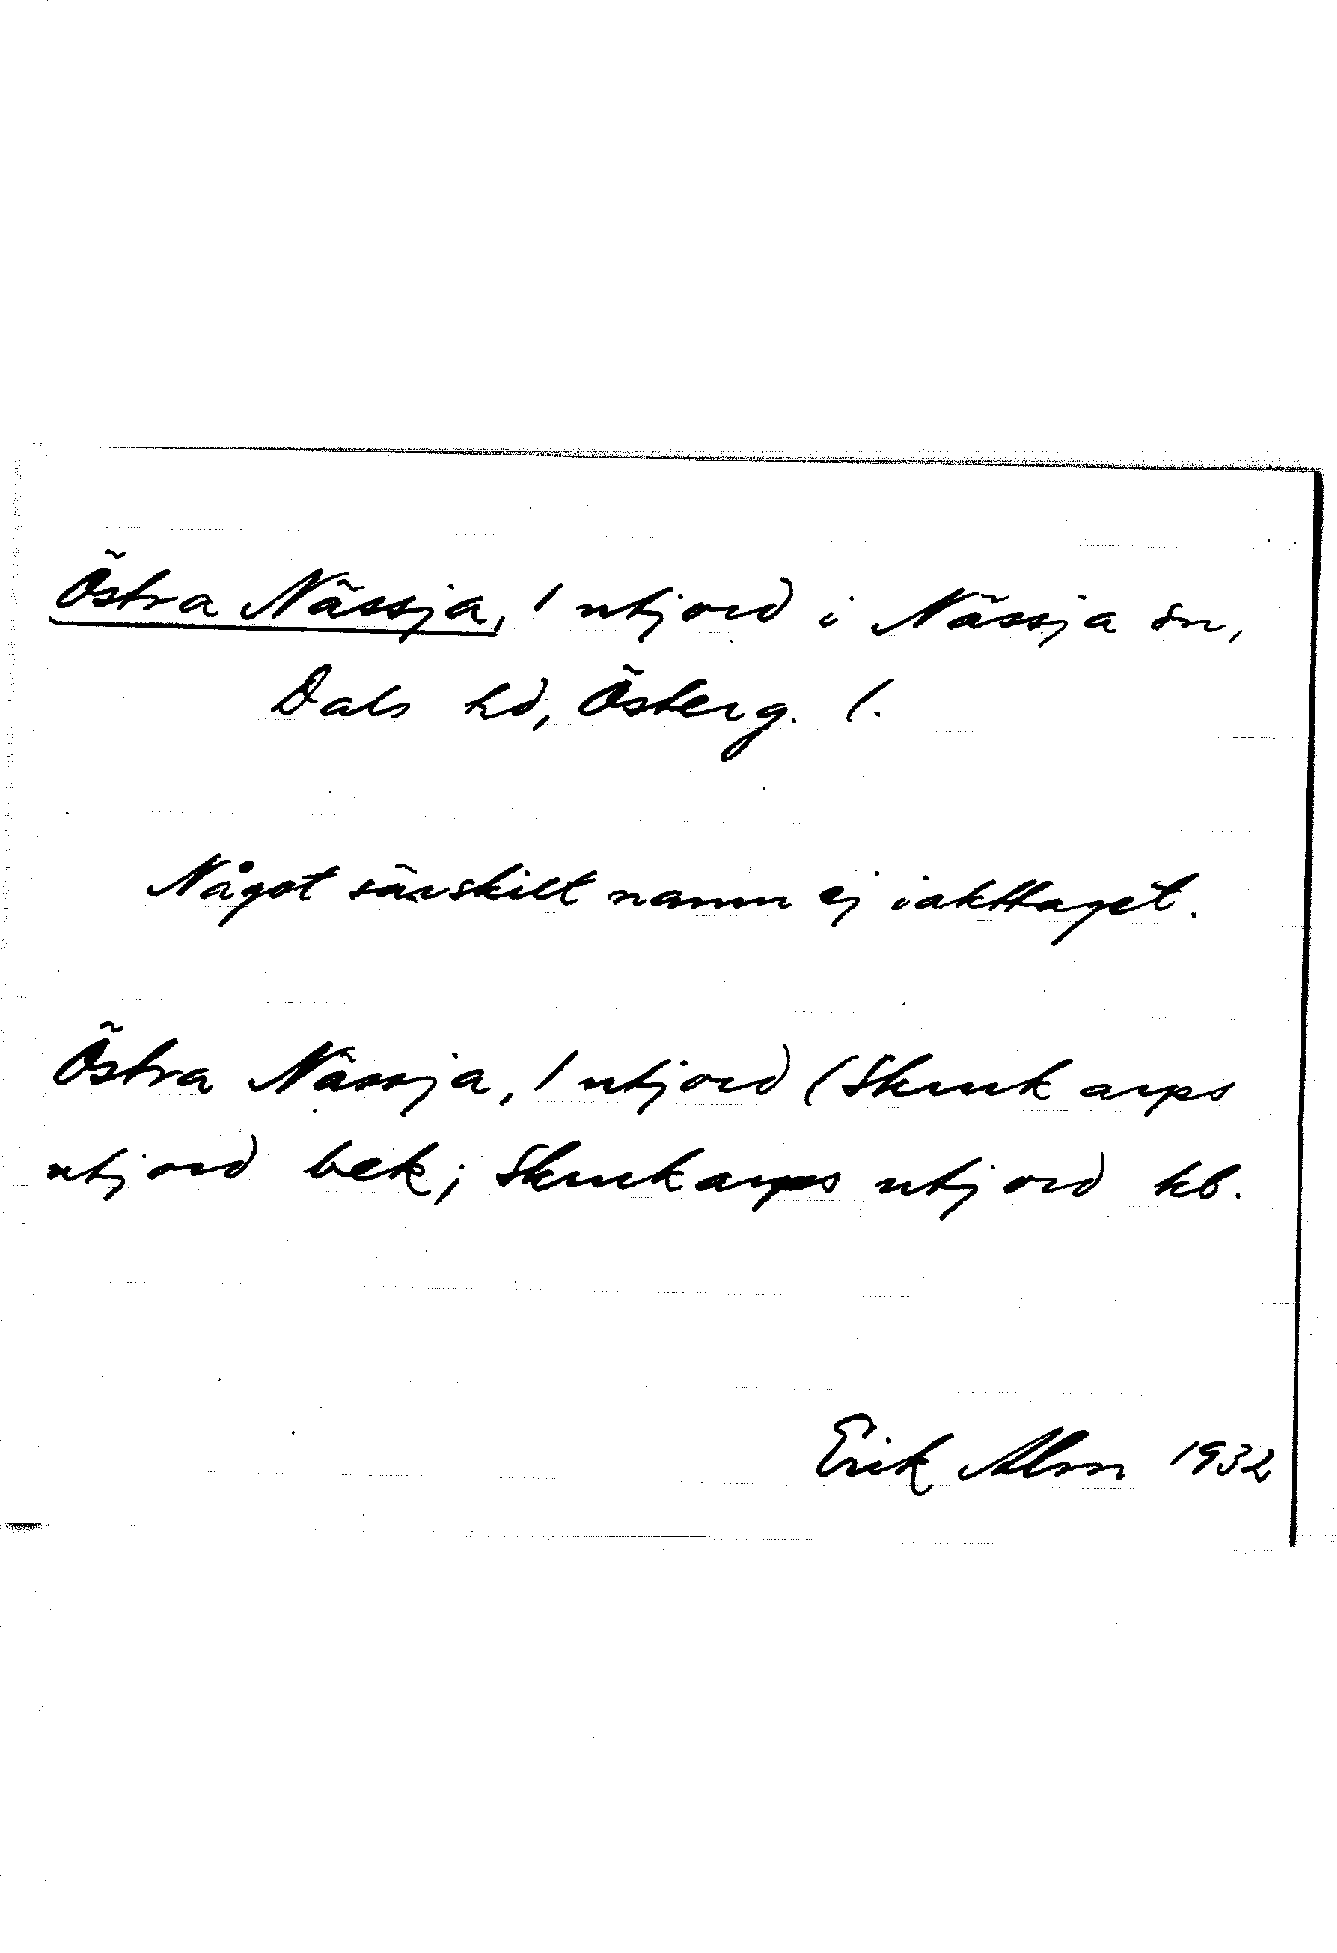 Östra Nässja, 1 utjord i Nässja sn,
Dals hd, Österg. l.
Något särskilt namn ej iakttaget.
Östra Nässja, 1 utjord (Skrukarps
utjord bek; Skrukarps utjord kb.
Erik Alm 1932